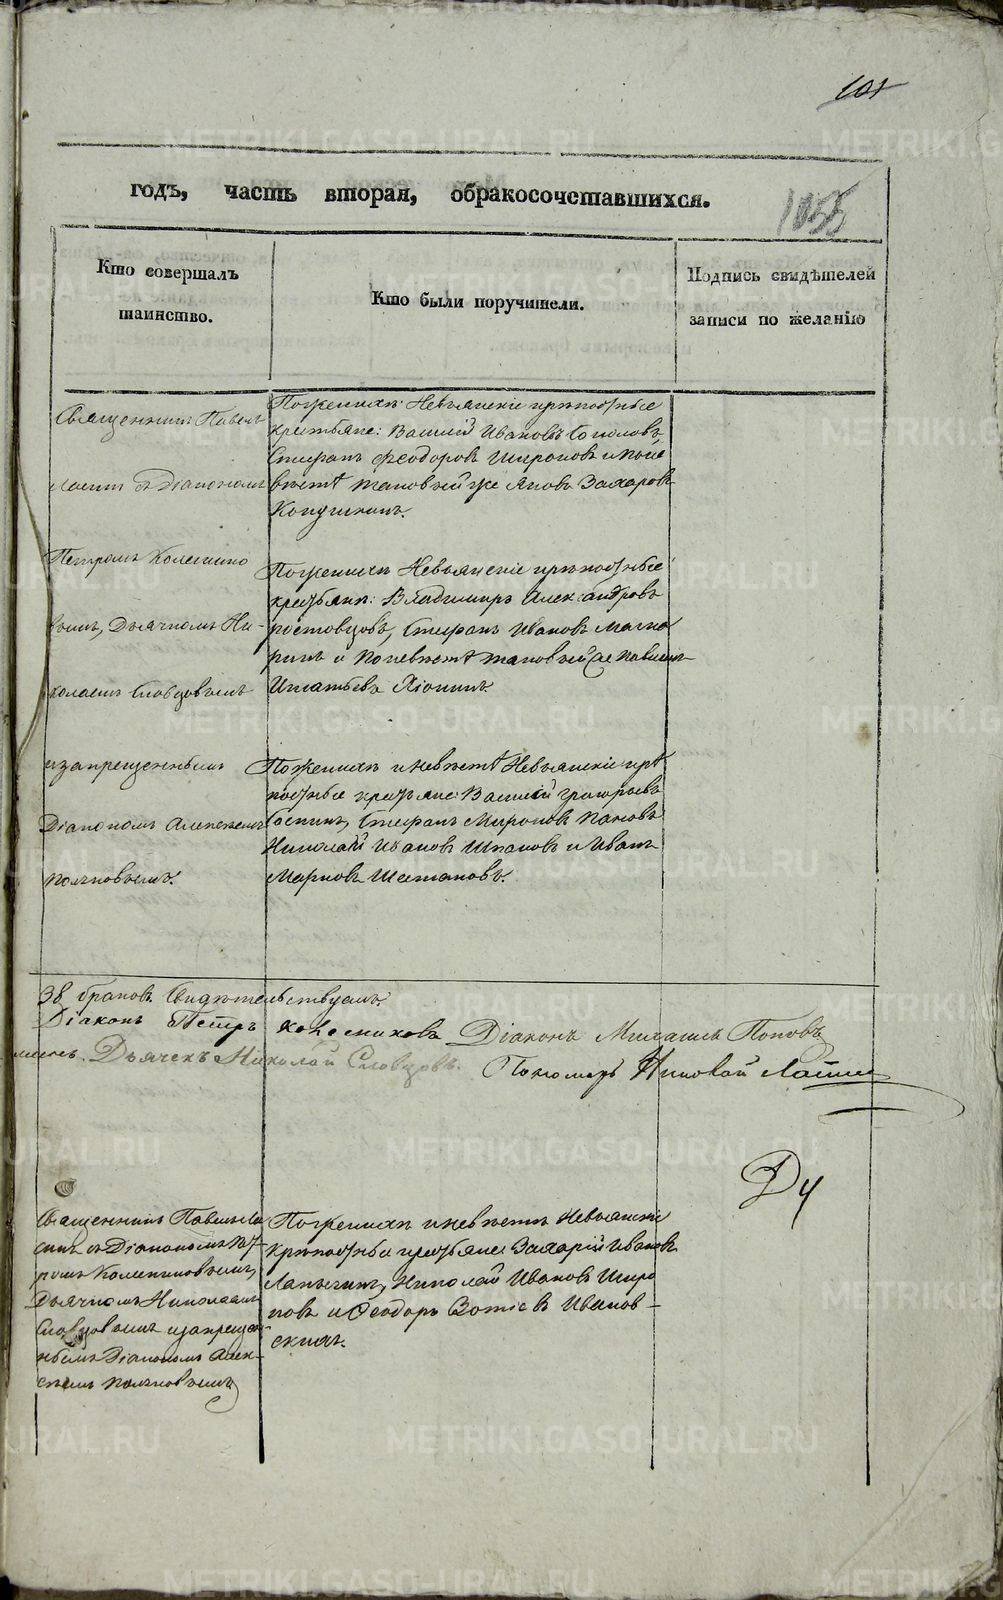 101
годъ, часть вторая, обракосочетавшихся.
1055
Кто совершалъ таинство.
Кто были поручители.
Подпись свидѣтелей записи по желанію
Священникъ Павелъ
Лапинъ съ Діакономъ
Петромъ Колеснико
вымъ, Дьячкомъ Ни-
колаемъ Словцовымъ
и запрещеннымъ
Діакономъ Алексѣемъ
Поляковымъ.
По женихѣ: Невьянскіе крѣпостные
крестьяне: Василій Ивановъ Соколовъ,
Стефанъ Феодоровъ Широковъ и по не
вѣстѣ таковой же Яковъ Захаровъ
Кокушкинъ.
По женихѣ Невьянскіе крѣпостные
крестьяне: Владимиръ Александровъ
Ростовцовъ, Стефанъ Ивановъ
и по невѣстѣ таковой же Павелъ
Игнатьевъ
По женихѣ и невѣстѣ Невьянскіе крѣ
постные крестьяне: Василій Григорьевъ
Стефанъ Мироновъ Пановъ
Николай Ивановъ и Иванъ
Марковъ Шестаковъ.
38 браковъ Свидѣтельствуемъ:
Діаконъ Петръ Колесниковъ Діаконъ Михаилъ Поповъ
Дьячекъ Николай Словцовъ. Пономарь Николай Лапинъ
Священникъ Павелъ Ла
пинъ съ Діакономъ Пет-
ромъ Колесниковымъ,
Дьячкомъ Николаемъ
Словцовымъ и запрещен
нымъ Діакономъ Алек-
сѣемъ Поляковымъ
По женихѣ и невѣстѣ Невьянскіе
крѣпостные крестьяне Захарій Ивановъ
Николай Ивановъ Широ
ковъ и Феодоръ Зотіевъ Иванов-
скихъ.